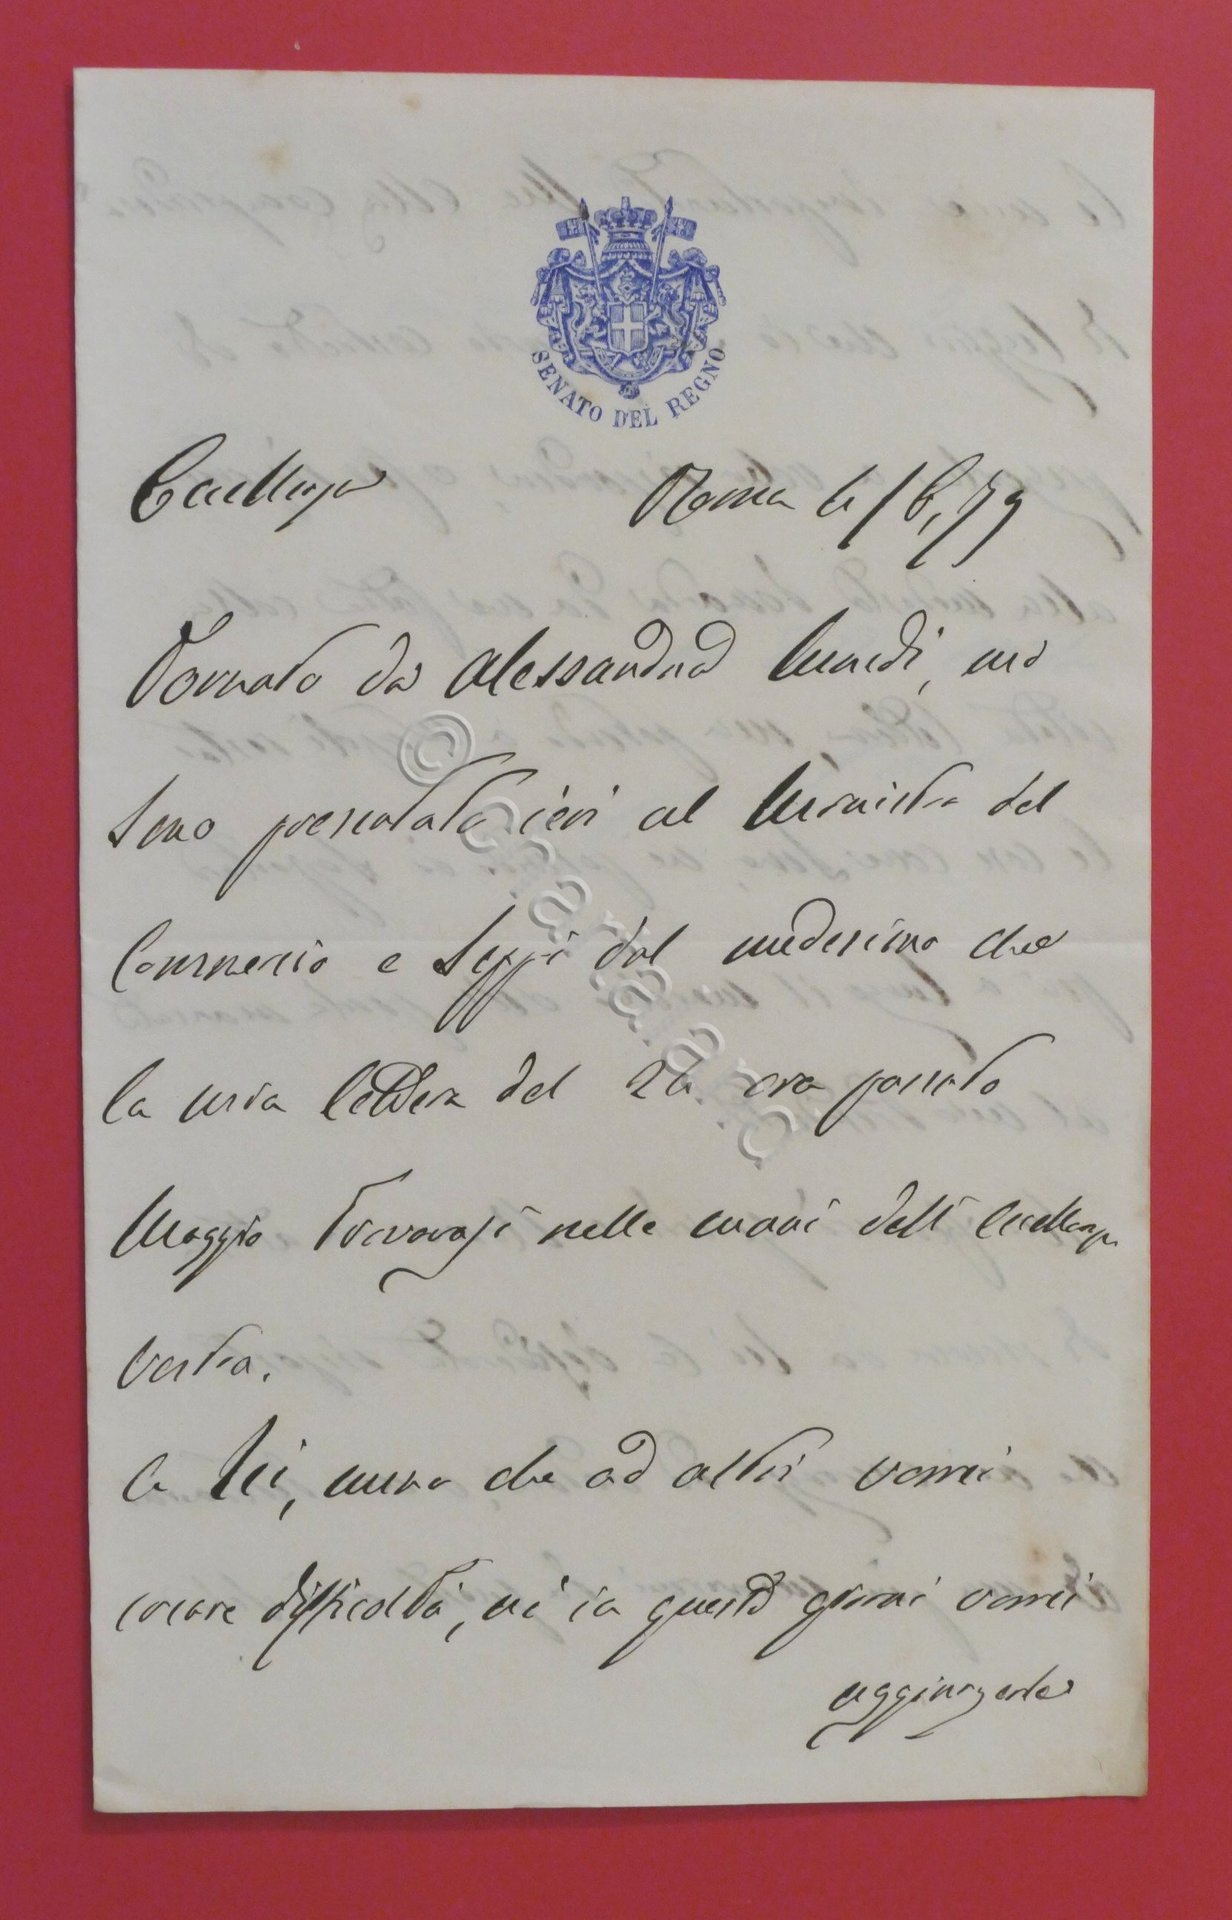 SENATO DEL REGNO
Eccellenza Roma 4/6, 79
Tornato da Alessandria lunedì, mi
sono presentato ieri al Ministro del
Commercio e seppi dal medesimo che
la mia lettera del 24 ora passato
Maggio trovavasi nelle mani dell'Eccellenza
Vostra.
A Lei, meno che ad altri vorrei
creare difficoltà, nè in questi giorni vorrei
aggiungerle
© charta.ro